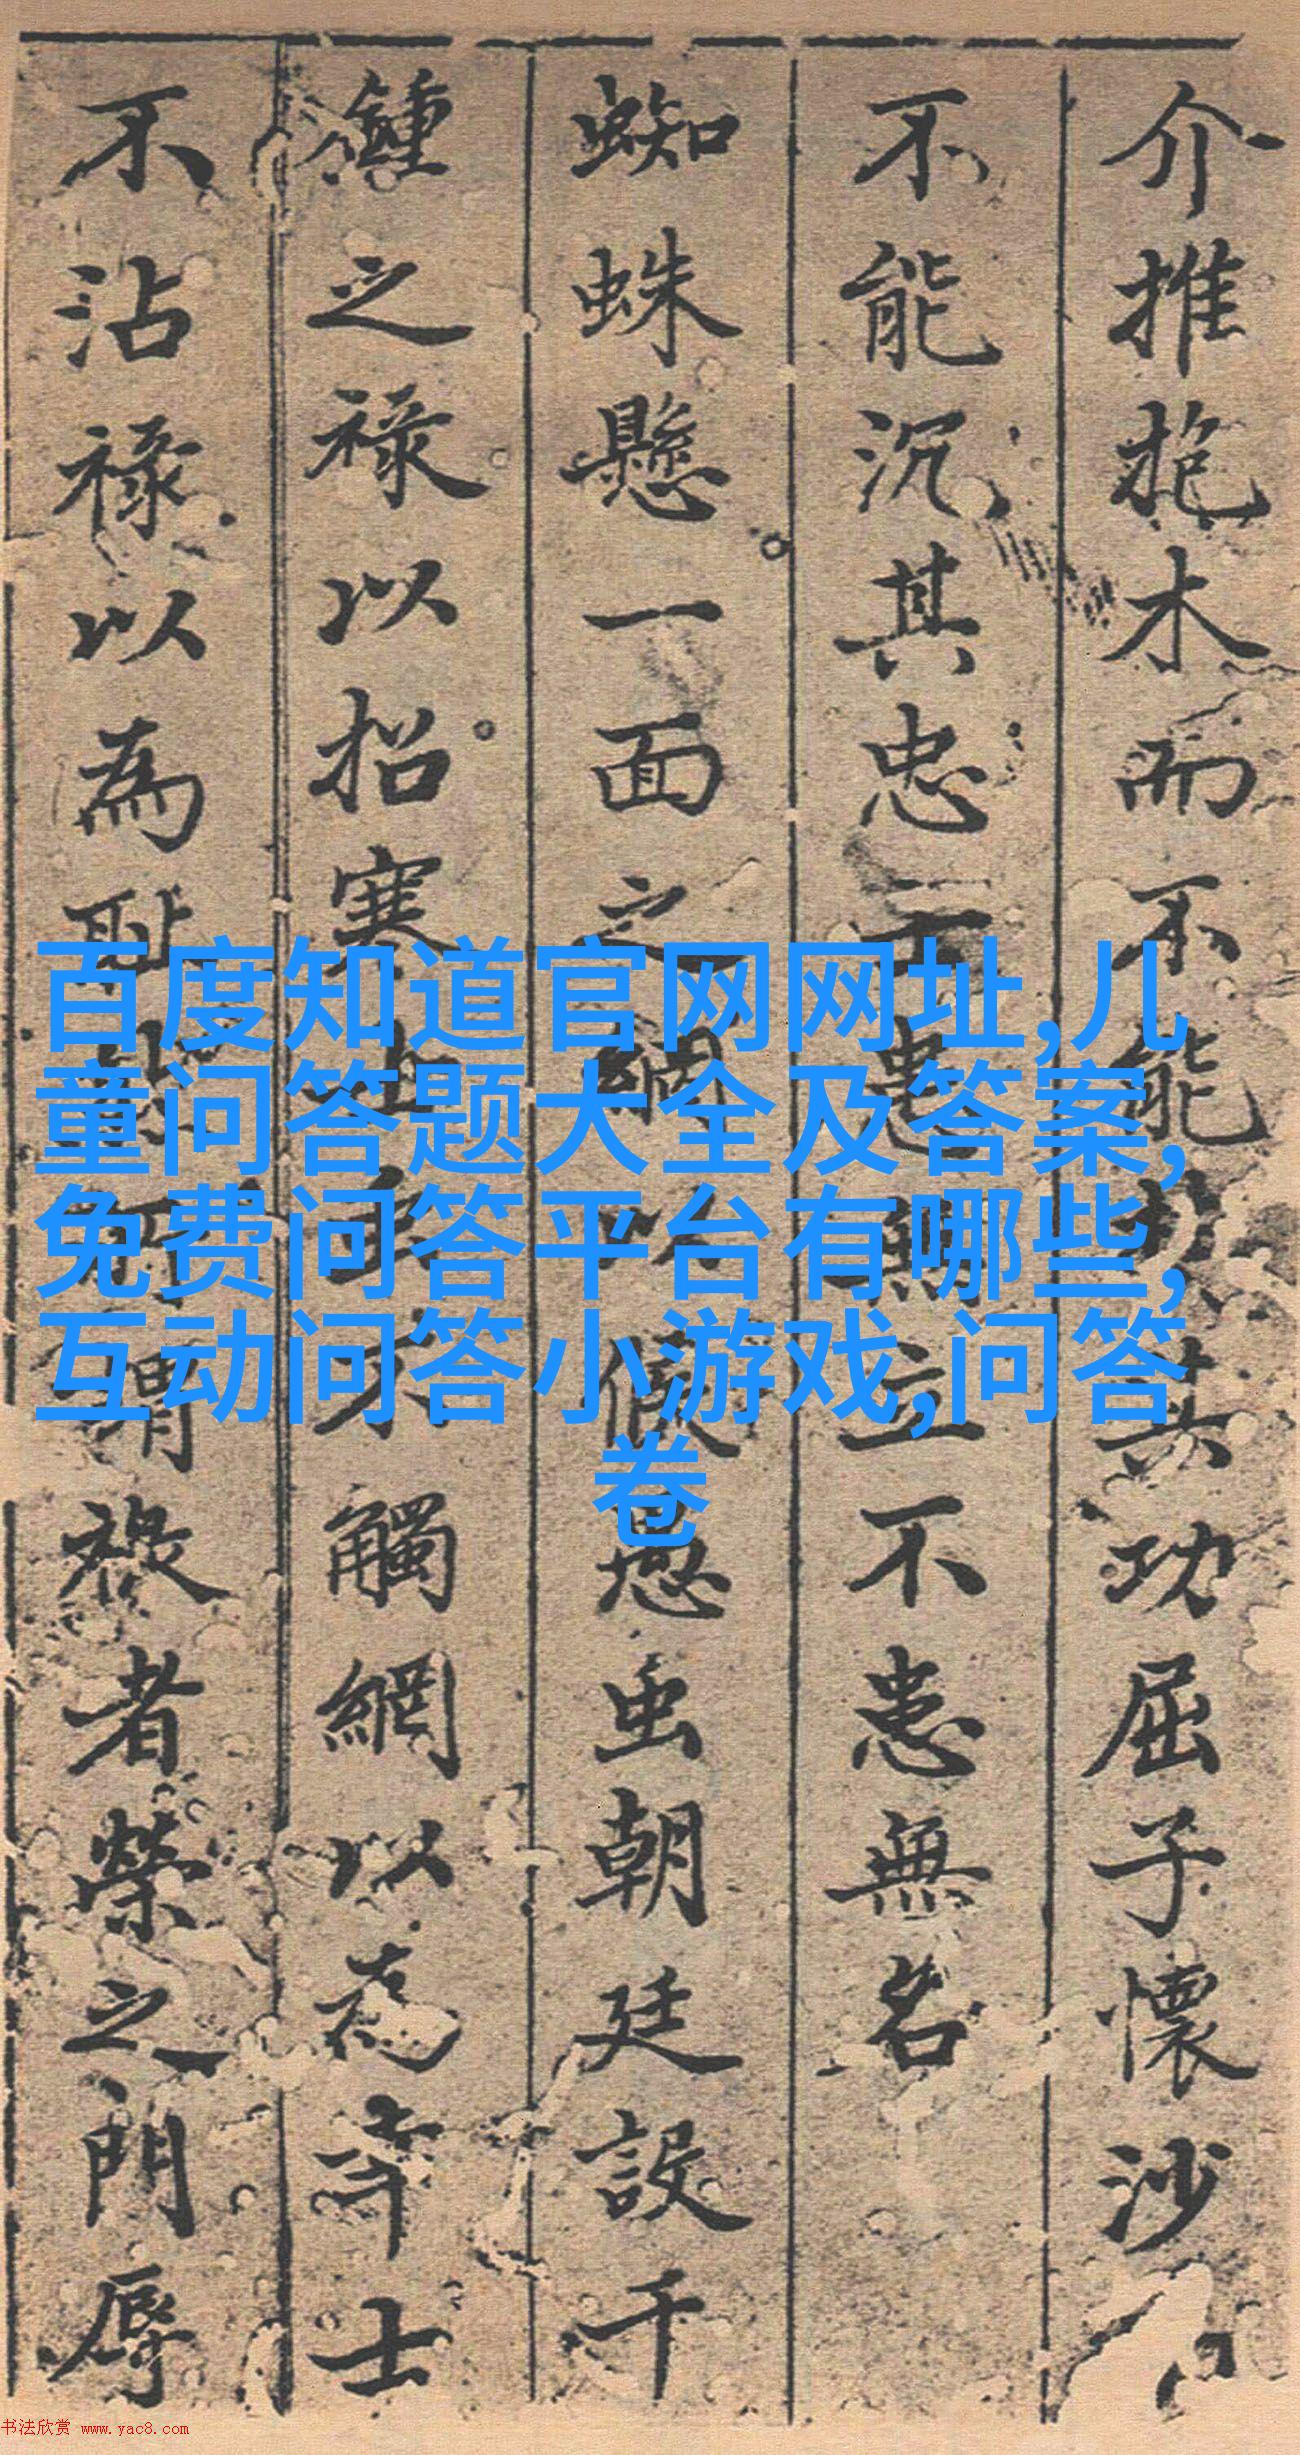 介推抱木而不能其功屈子懷沙
不能沉其忠不患無立不患無名
蜘蛛懸一面之網以假虫朝廷設千
鍾之禄以招寒士不觸網以為奇士
不沾禄以為耻謂禄者榮之門辱
百度知道官网网址,儿
童问答题大全及答案,
免费问答平台有哪些,
互动问答小游戏,问答
卷
书法欣赏 www.yac8.com